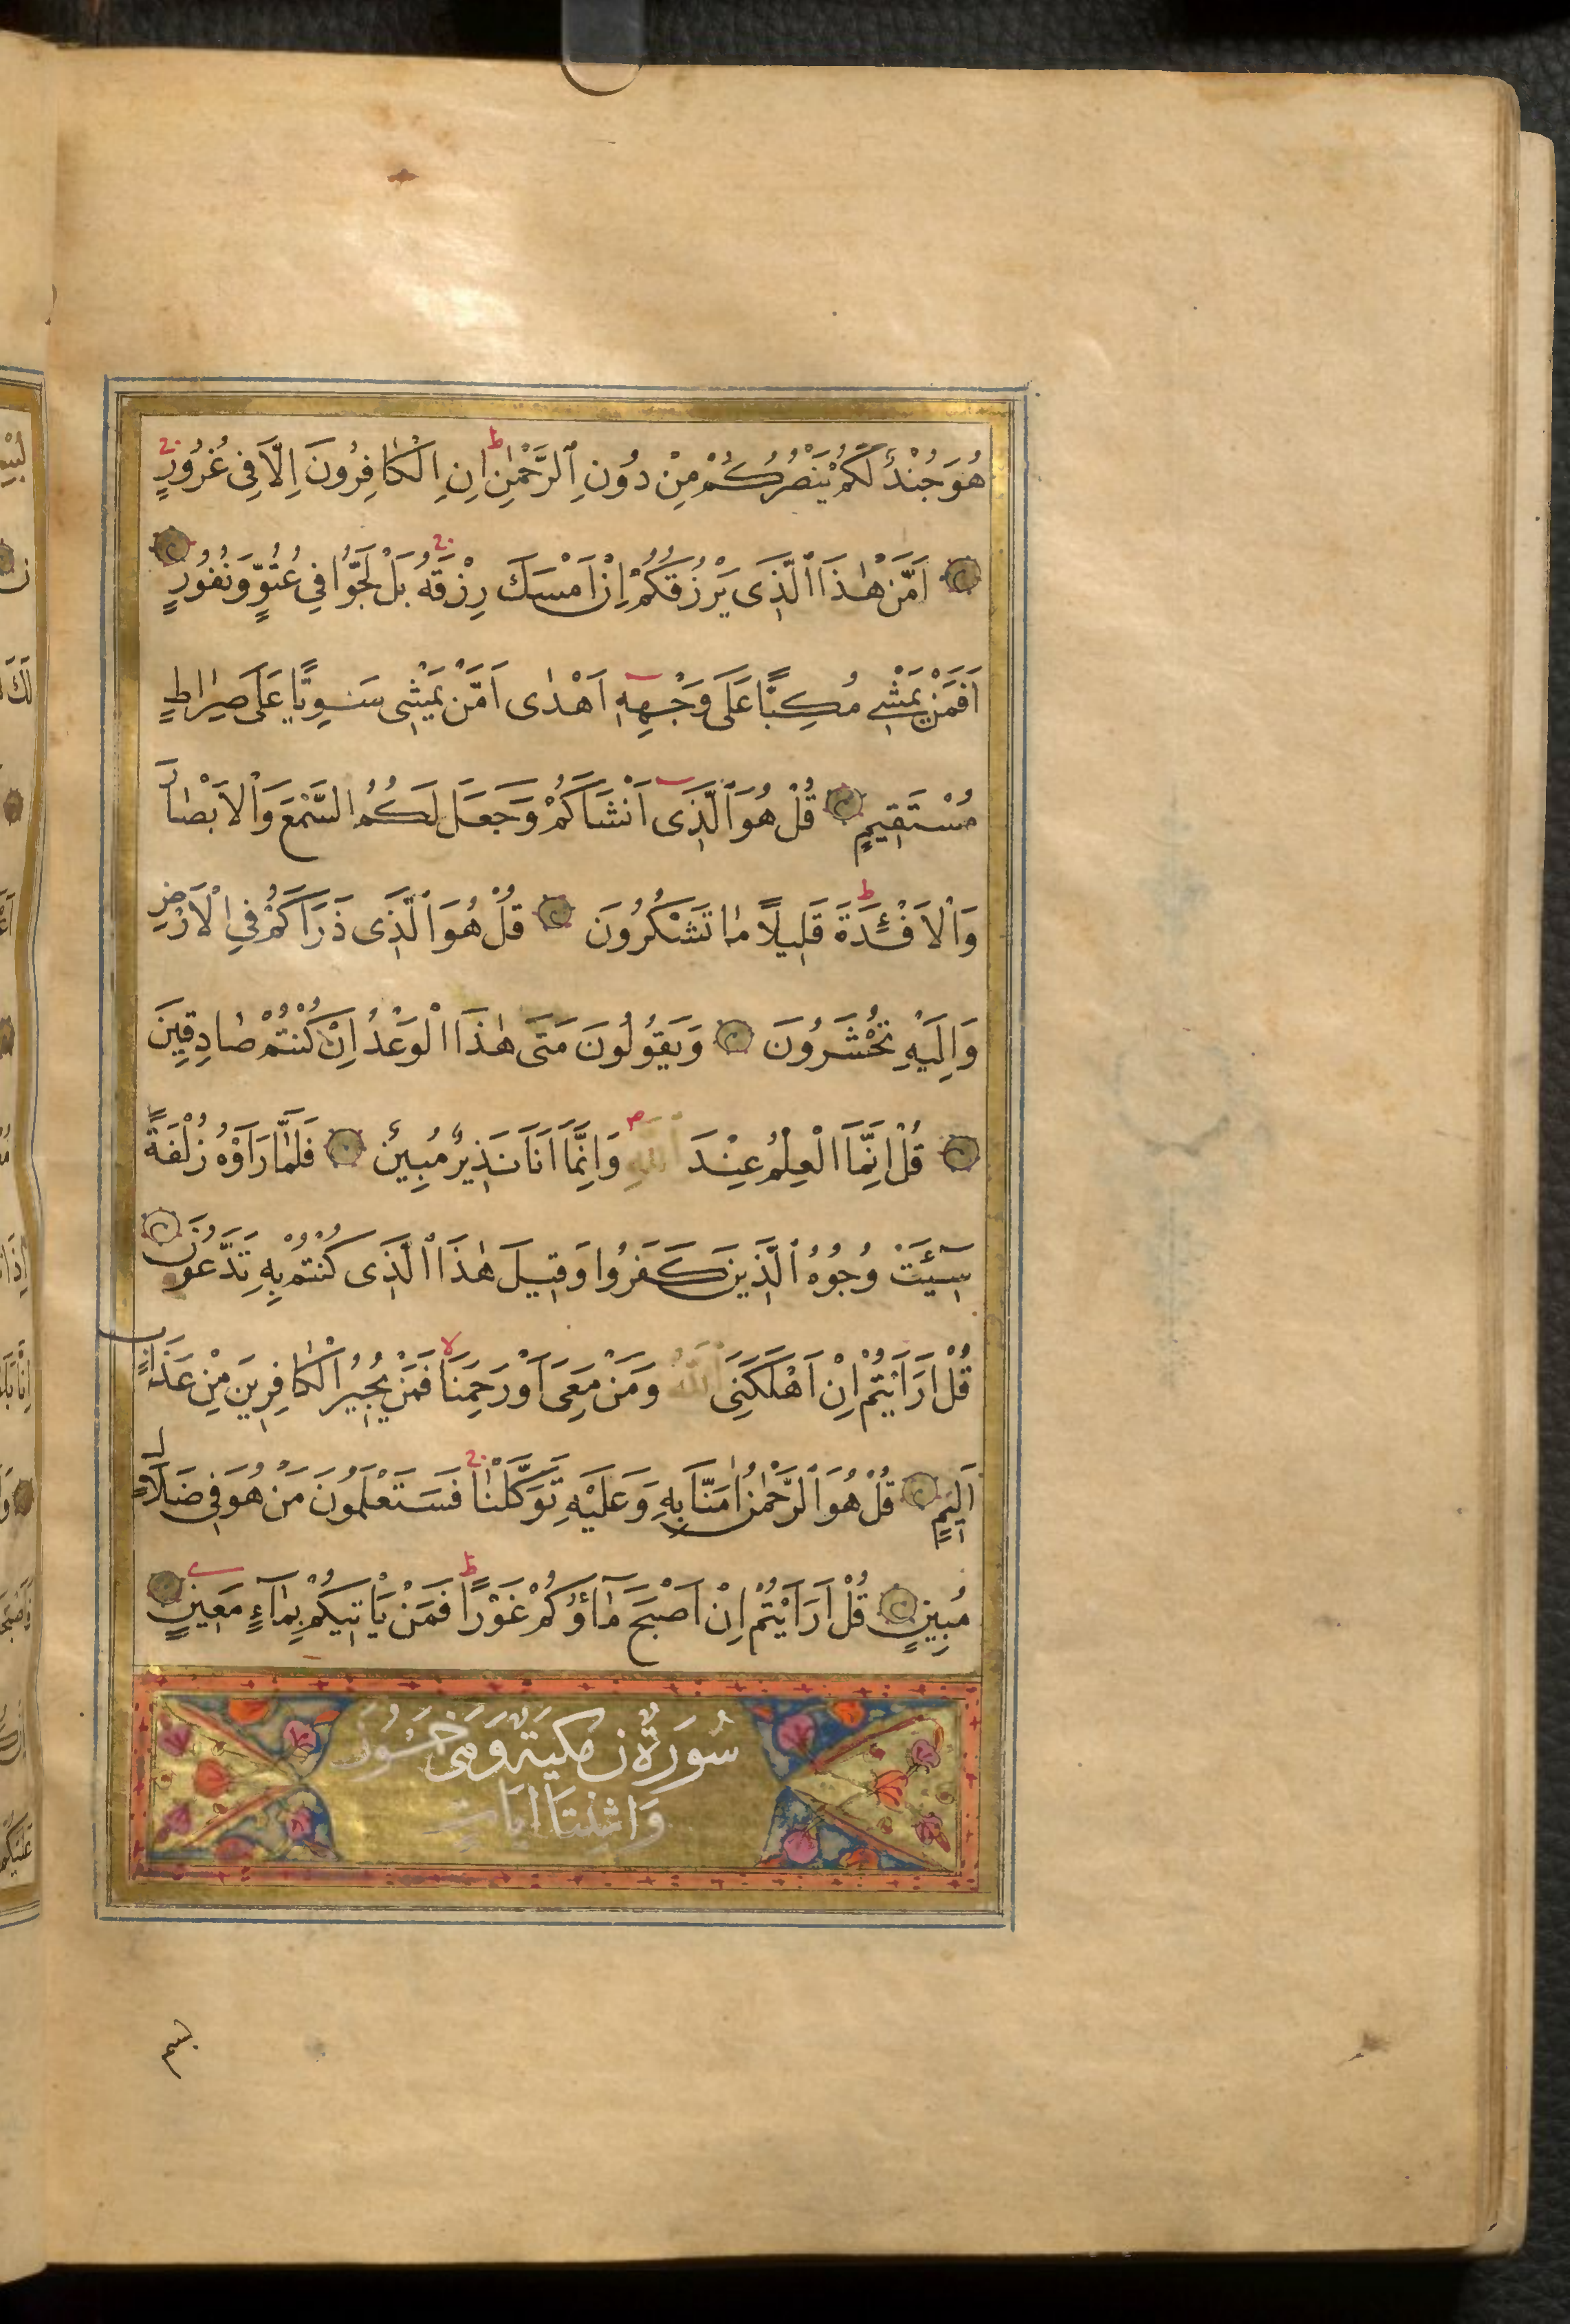 هُوَ جُنْدٌ لَكُمْ يَنْصُرُكُمْ مِنْ دُونِ الرَّحْمٰنِ اِنِ الْكٰافِرُونَ اِلَّا فِى غُرُورٍ
اَمَّنْ هٰذَا الَّذِى يَرْزُقُكُمْ اِنْ اَمْسَكَ رِزْقَهُ بَلْ لَجُّوا فِي عُتُوٍّ وَنُفُورٍ
اَفَمَنْ يَمْشِي مُكِبًّا عَلَى وَجْهِهِ اَهْدٰى اَمَّنْ يَمْشِى سَوِيًّا عَلَى صِرٰاطٍ
مُسْتَقِيمٍ قُلْ هُوَ الَّذِى اَنْشَاَكُمْ وَجَعَلَ لَكُمُ السَّمْعَ وَالْاَبْصٰارَ
وَالْاَفْئِدَةَ قَلِيلًا مٰا تَشْكُرُونَ قُلْ هُوَ الَّذِى ذَرَاَكُمْ فِي الْاَرْضِ
وَاِلَيْهِ تُحْشَرُونَ وَيَقُولُونَ مَتَى هٰذَا الْوَعْدُ اِنْ كُنْتُمْ صٰادِقِينَ
قُلْ اِنَّمَا الْعِلْمُ عِنْدَ اللّٰهِ وَاِنَّمَا اَنَا نَذِيرٌ مُبِينٌ فَلَمّٰا رَاَوْهُ زُلْفَةً
سِيٓئَتْ وُجُوهُ الَّذِينَ كَفَرُوا وَقِيلَ هٰذَا الَّذِى كُنْتُمْ بِهِ تَدَّعُونَ
قُلْ اَرَاَيْتُمْ اِنْ اَهْلَكَنِىَ اللّٰهُ وَمَنْ مَعِىَ اَوْ رَحِمَنٰا فَمَنْ يُجِيرُ الْكٰافِرِينَ مِنْ عَذٰابٍ
اَلِيمٍ قُلْ هُوَ الرَّحْمٰنُ اٰمَنّٰا بِهِ وَعَلَيْهِ تَوَكَّلْنٰا فَسَتَعْلَمُونَ مَنْ هُوَ فِى ضَلَالٍ
مُبِينٍ قُلْ اَرَاَيْتُمْ اِنْ اَصْبَحَ مٰاؤُكُمْ غَوْرًا فَمَنْ يَاْتِيكُمْ بِمٰاءٍ مَعِينٍ
سُورَةُ ن مَكِيَّةٌ وَهِيَ خَمْسُونَ
وَاثْنَتَا اٰيَاتٍ
بسم